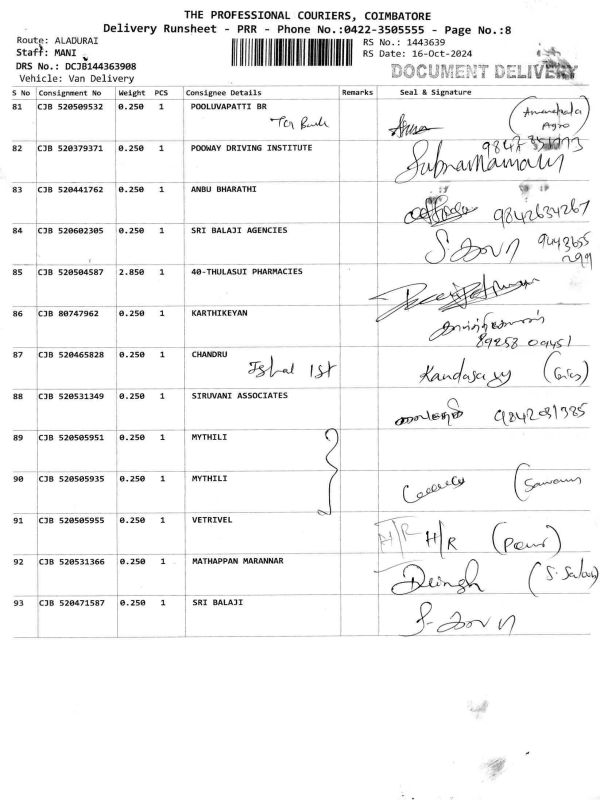 THE PROFESSIONAL COURIERS, COIMBATORE
Delivery Runsheet - PRR - Phone No.:0422-3505555 - Page No.:8
Route: ALADURAI
RS No.: 1443639
Staff: MANI
RS Date: 16-Oct-2024
DRS No.: DCJB144363908
DOCUMENT DELIVERY
Vehicle: Van Delivery
S No Consignment No Weight PCS Consignee Details Remarks Seal & Signature
81 CJB 520509532 0.250 1 POOLUVAPATTI BR
Agro
82 CJB 520379371 0.250 1 POOWAY DRIVING INSTITUTE
83 CJB 520441762 0.250 1 ANBU BHARATHI
9842634267
84 CJB 520602305 0.250 1 SRI BALAJI AGENCIES
9443655
299
85 CJB 520504587 2.850 1 40-THULASUI PHARMACIES
86 CJB 80747962 0.250 1 KARTHIKEYAN
89258 09451
87 CJB 520465828 0.250 1 CHANDRU
1st Kandasamy
88 CJB 520531349 0.250 1 SIRUVANI ASSOCIATES
9842031385
89 CJB 520505951 0.250 1 MYTHILI
90 CJB 520505935 0.250 1 MYTHILI
91 CJB 520505955 0.250 1 VETRIVEL
H/R H/R
92 CJB 520531366 0.250 1 MATHAPPAN MARANNAR
93 CJB 520471587 0.250 1 SRI BALAJI